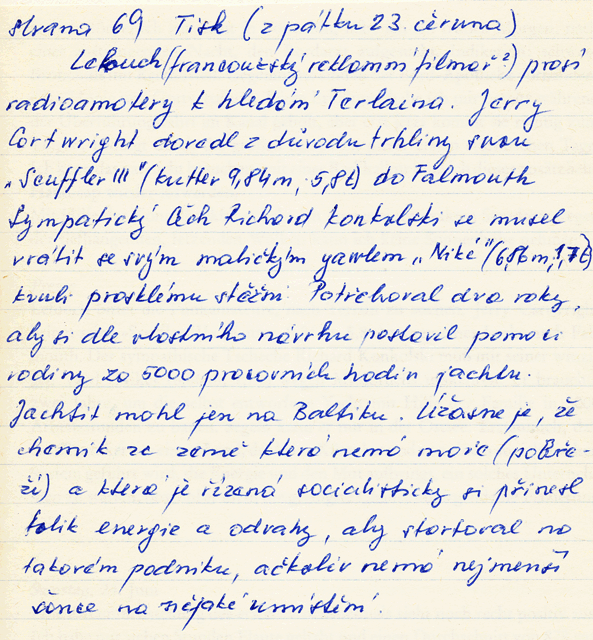 strana 69 Tisk (z pátku 23. června)
Lelouch (francouzský reklamní filmař?) prosí
radioamatéry k hledání Terlaina. Jerry
Cortwright dovedl z důvodu trhliny svou
„Scuffler III" (kutter 9,84m, 5,8t) do Falmouth
Sympatický Čech Richard Konkolski se musel
vrátit se svým maličkým yawlem „Niké" (6,86m, 1,7t)
kvuli prasklému stěžni. Potřeboval dva roky,
aby si dle vlastního návrhu postavil pomocí
rodiny za 5000 pracovních hodin jachtu.
Jachtit mohl jen na Baltiku. Úžasné je, že
chemik ze země která nemá moře (pobře-
ží) a která je řízená socialisticky si přinesl
tolik energie a odvahy, aby startoval na
takovém podniku, ačkoliv nemá nejmenší
šance na nějaké umístění.